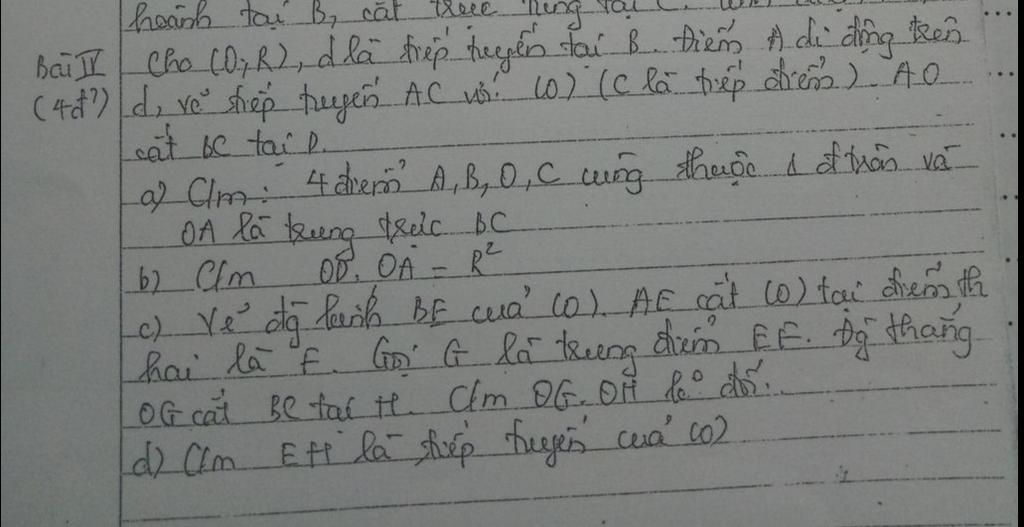 hoành tại B, cắt trục tung tại C.
Bài IV
(4đ)
Cho (O;R), d là tiếp tuyến tại B. Điểm A di động trên
d, vẽ tiếp tuyến AC với (O) (C là tiếp điểm). AO
cắt BC tại D.
a) C/m: 4 điểm A, B, O, C cùng thuộc 1 đ tròn và
OA là trung trực BC
b) C/m OD. OA = R²
c) Vẽ đg kính BE của (O). AE cắt (O) tại điểm th
hai là F. Gọi G là trung điểm EF. Đg thẳng
OG cắt BC tại H. C/m OG. OH ko đổi.
d) C/m EH là tiếp tuyến của (O)